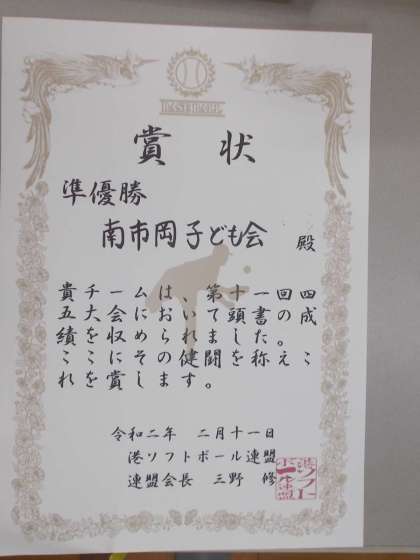 BASEBALL
賞状
準優勝
南市岡子ども会 殿
貴チームは、第十一回四
五大会において頭書の成
績を収められました。
ここにその健闘を称えこ
れを賞します。
令和二年 二月十一日
港ソフトボール連盟
連盟会長 三野 修
港ソフトボール連盟